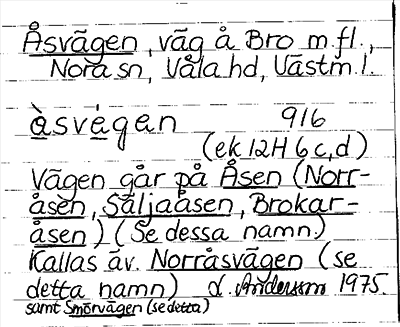 Åsvägen, väg å Bro m.fl.,
Nora sn, Våla hd, Västm. l.
åsvägan 916
(ek 12H 6c,d)
Vägen går på Åsen (Norr-
åsen, Säljaåsen, Brokar-
åsen) (Se dessa namn.)
Kallas äv. Norråsvägen (se
detta namn) Andersson 1975.
samt Smörvägen (se detta)